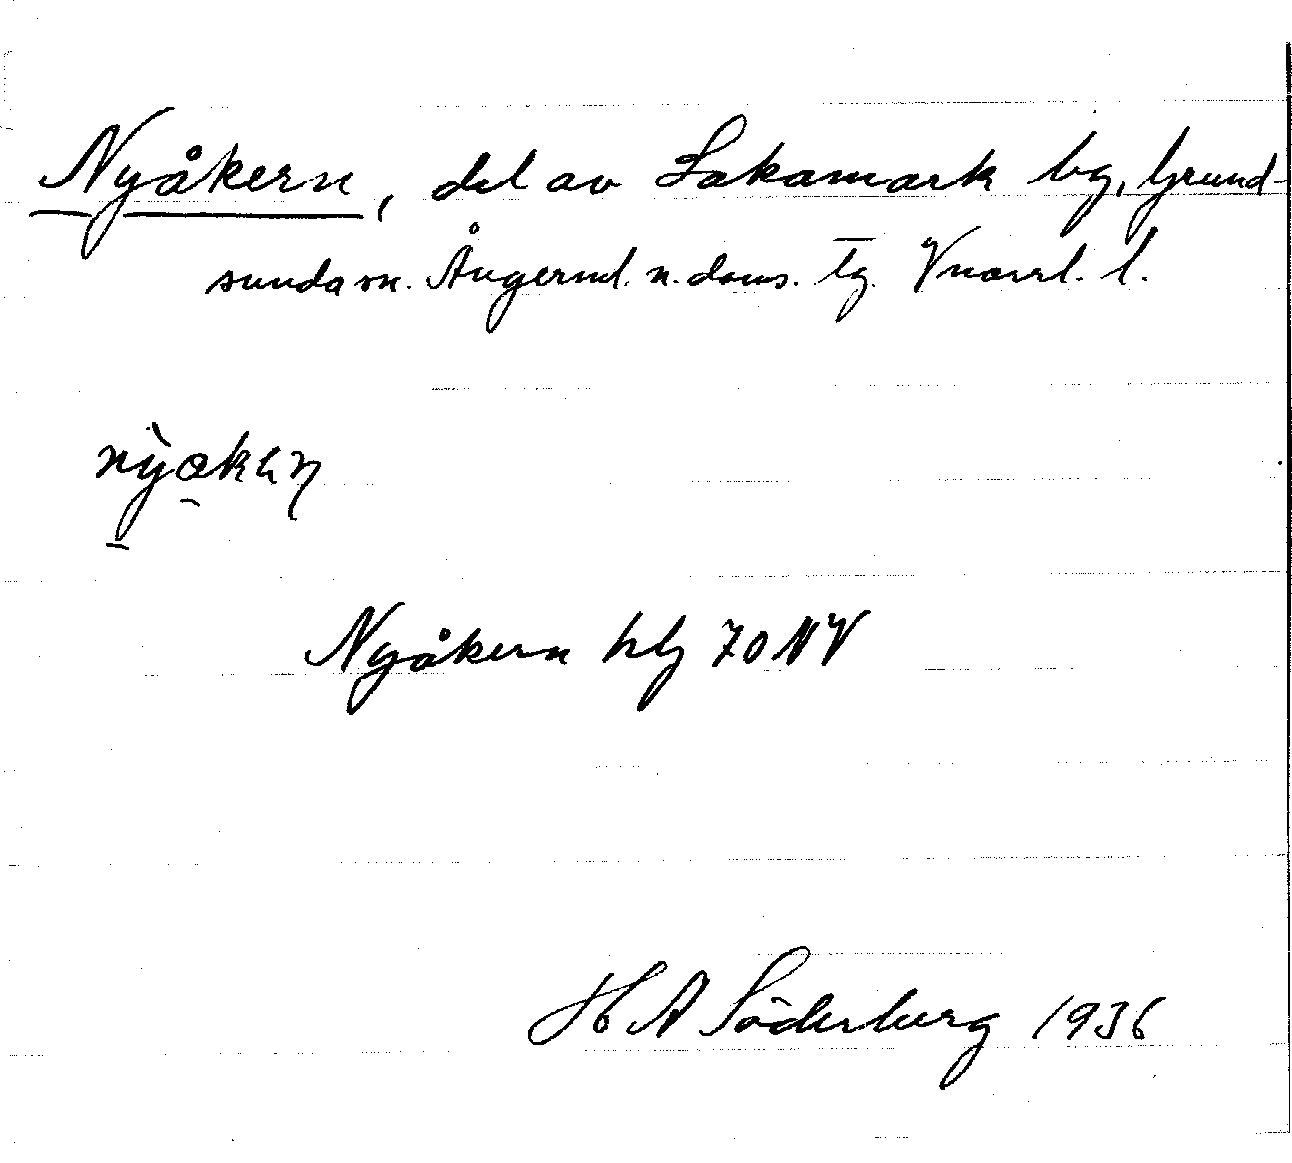 Nyåkern, del av Sakamark bg, Grund-
sunda sn. Ångerml. n. doms. tg. Vnorrl. l.
Nyåkern blz 70 NV
H A Söderberg 1936